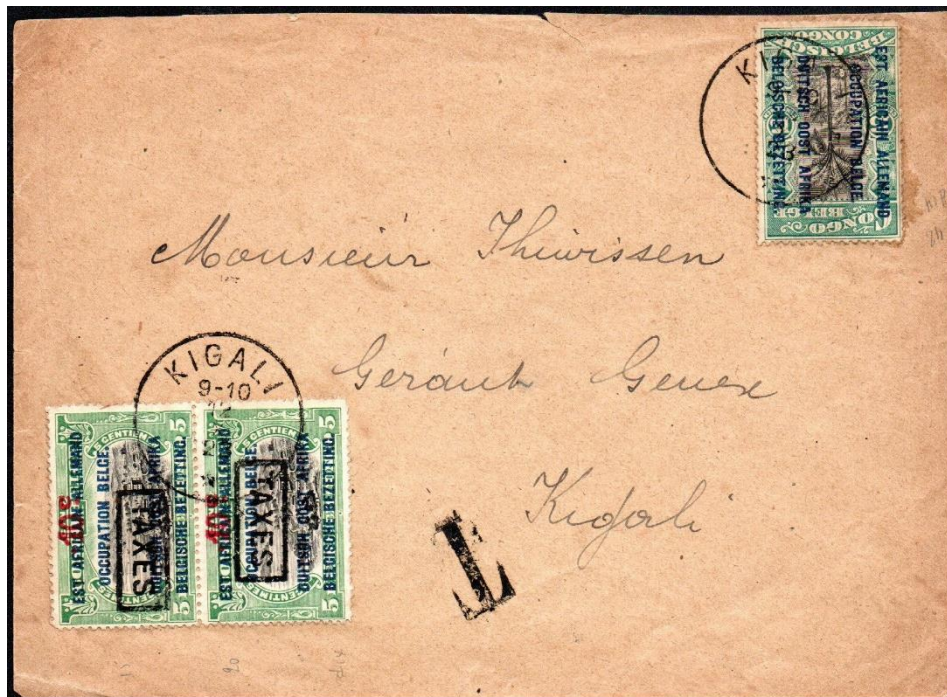 KIGALI
BELGISCH
CONGO
EST AFRICAIN ALLEMAND
OCCUPATION BELGE.
DUITSCH OOST AFRIKA
BELGISCHE BEZETTING.
CONGO
BELGE
Monsieur Thiwissen
Gérant Genex
Kigali
KIGALI
9-10
5 5
10c
EST AFRICAIN ALLEMAND
OCCUPATION BELGE.
DUITSCH OOST AFRIKA
BELGISCHE BEZETTING.
TAXES
5 5
10c
EST AFRICAIN ALLEMAND
OCCUPATION BELGE.
DUITSCH OOST AFRIKA
BELGISCHE BEZETTING.
TAXES
T